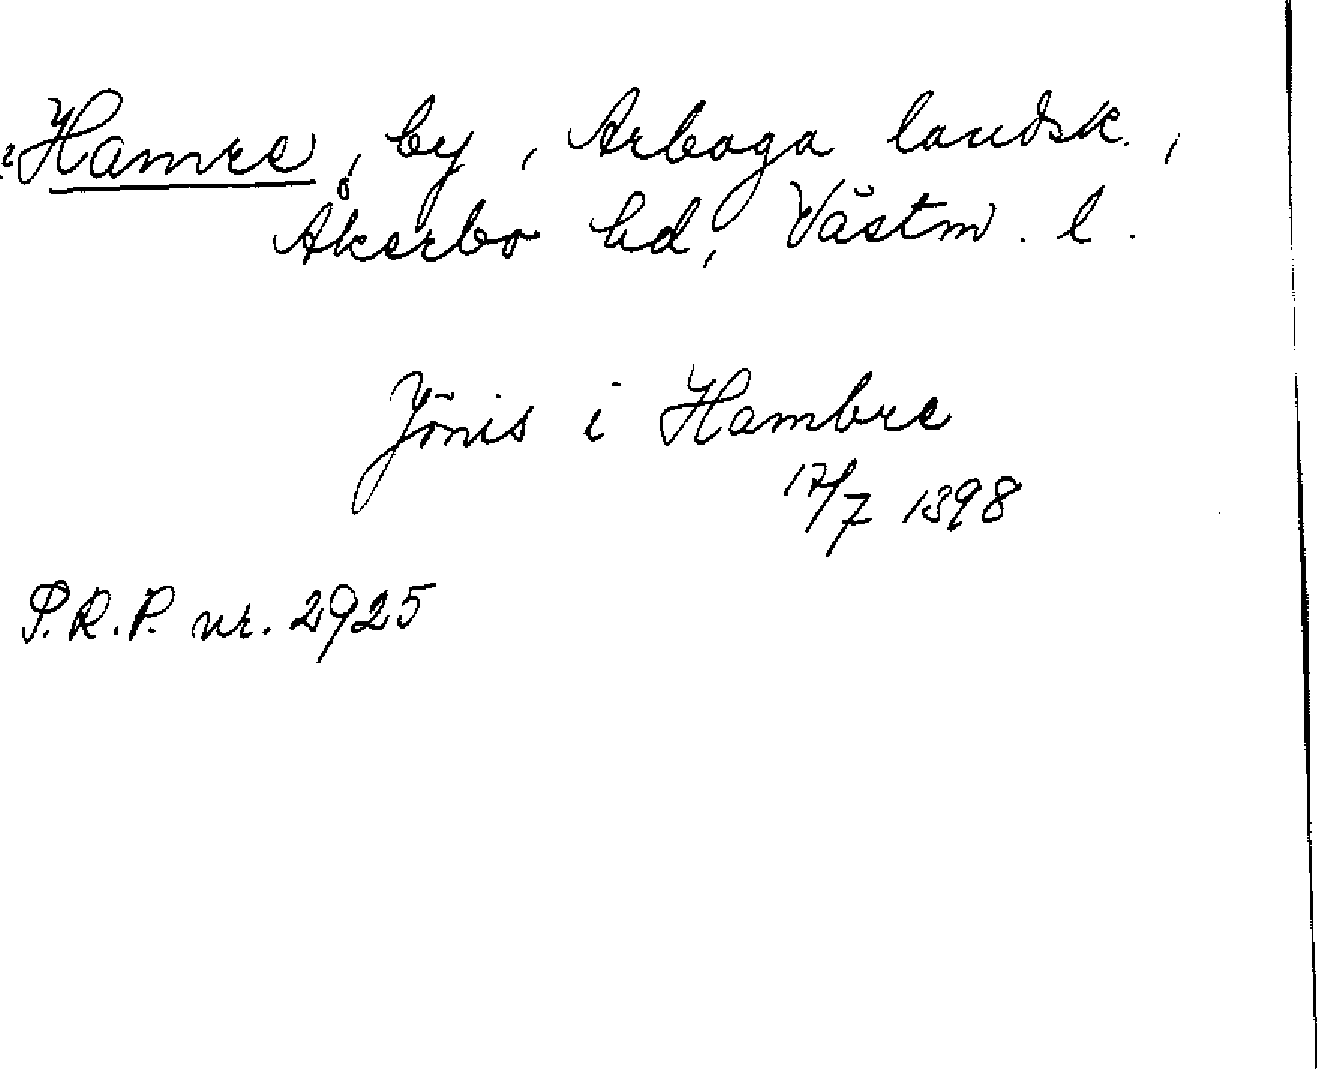 Hamre, by, Arboga landsk.,
Åkerbo hd, Västm. l.
Jönis i Hambre
17/7 1398
P.R.P. nr. 2925